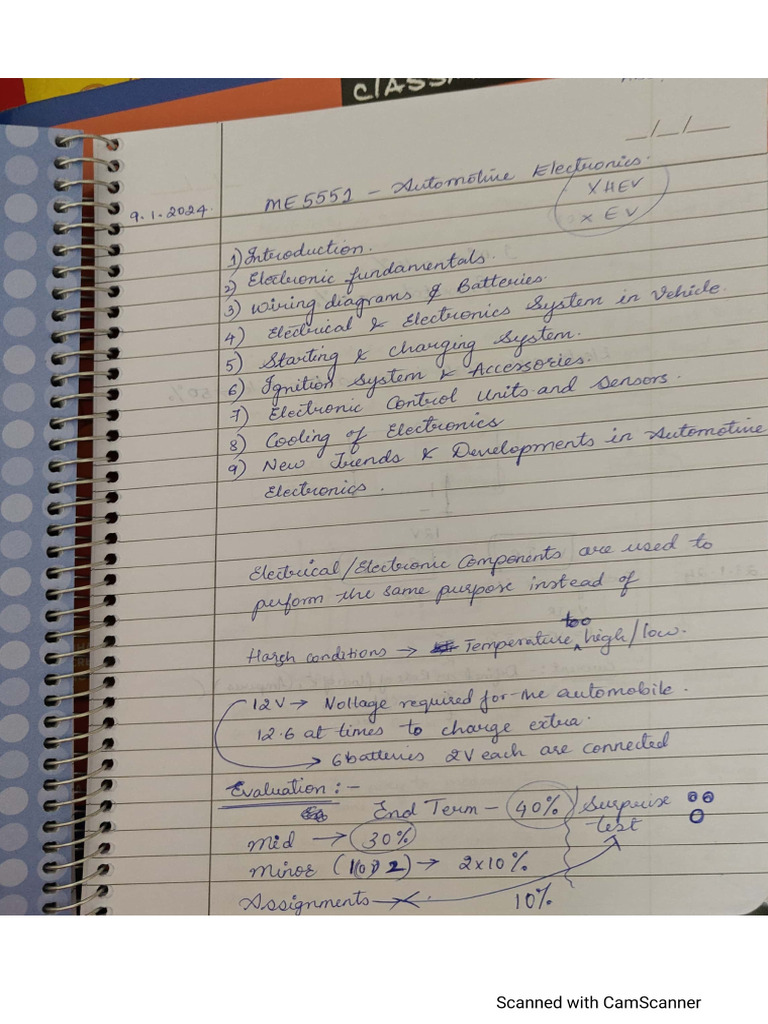 CLASS
_/_/__
9.1.2024.
ME5551 - Automotive Electronics.
X HEV
X EV
1) Introduction.
2) Electronic fundamentals.
3) Wiring diagrams & Batteries.
4) Electrical & Electronics System in Vehicle.
5) Starting & charging System.
6) Ignition System & Accessories.
7) Electronic Control Units and Sensors.
8) Cooling of Electronics
9) New Trends & Developments in Automotive
Electronics.
Electrical/Electronic Components are used to
perform the same purpose instead of
Harsh conditions → Temperature too high/low.
12V → Voltage required for the automobile.
12.6 at times to charge extra.
→ 6 batteries 2V each are connected
Evaluation :-
End Term - 40%
Surprise
test
Mid → 30%
Minor (1 or 2) → 2x10%
Assignments
10%
Scanned with CamScanner